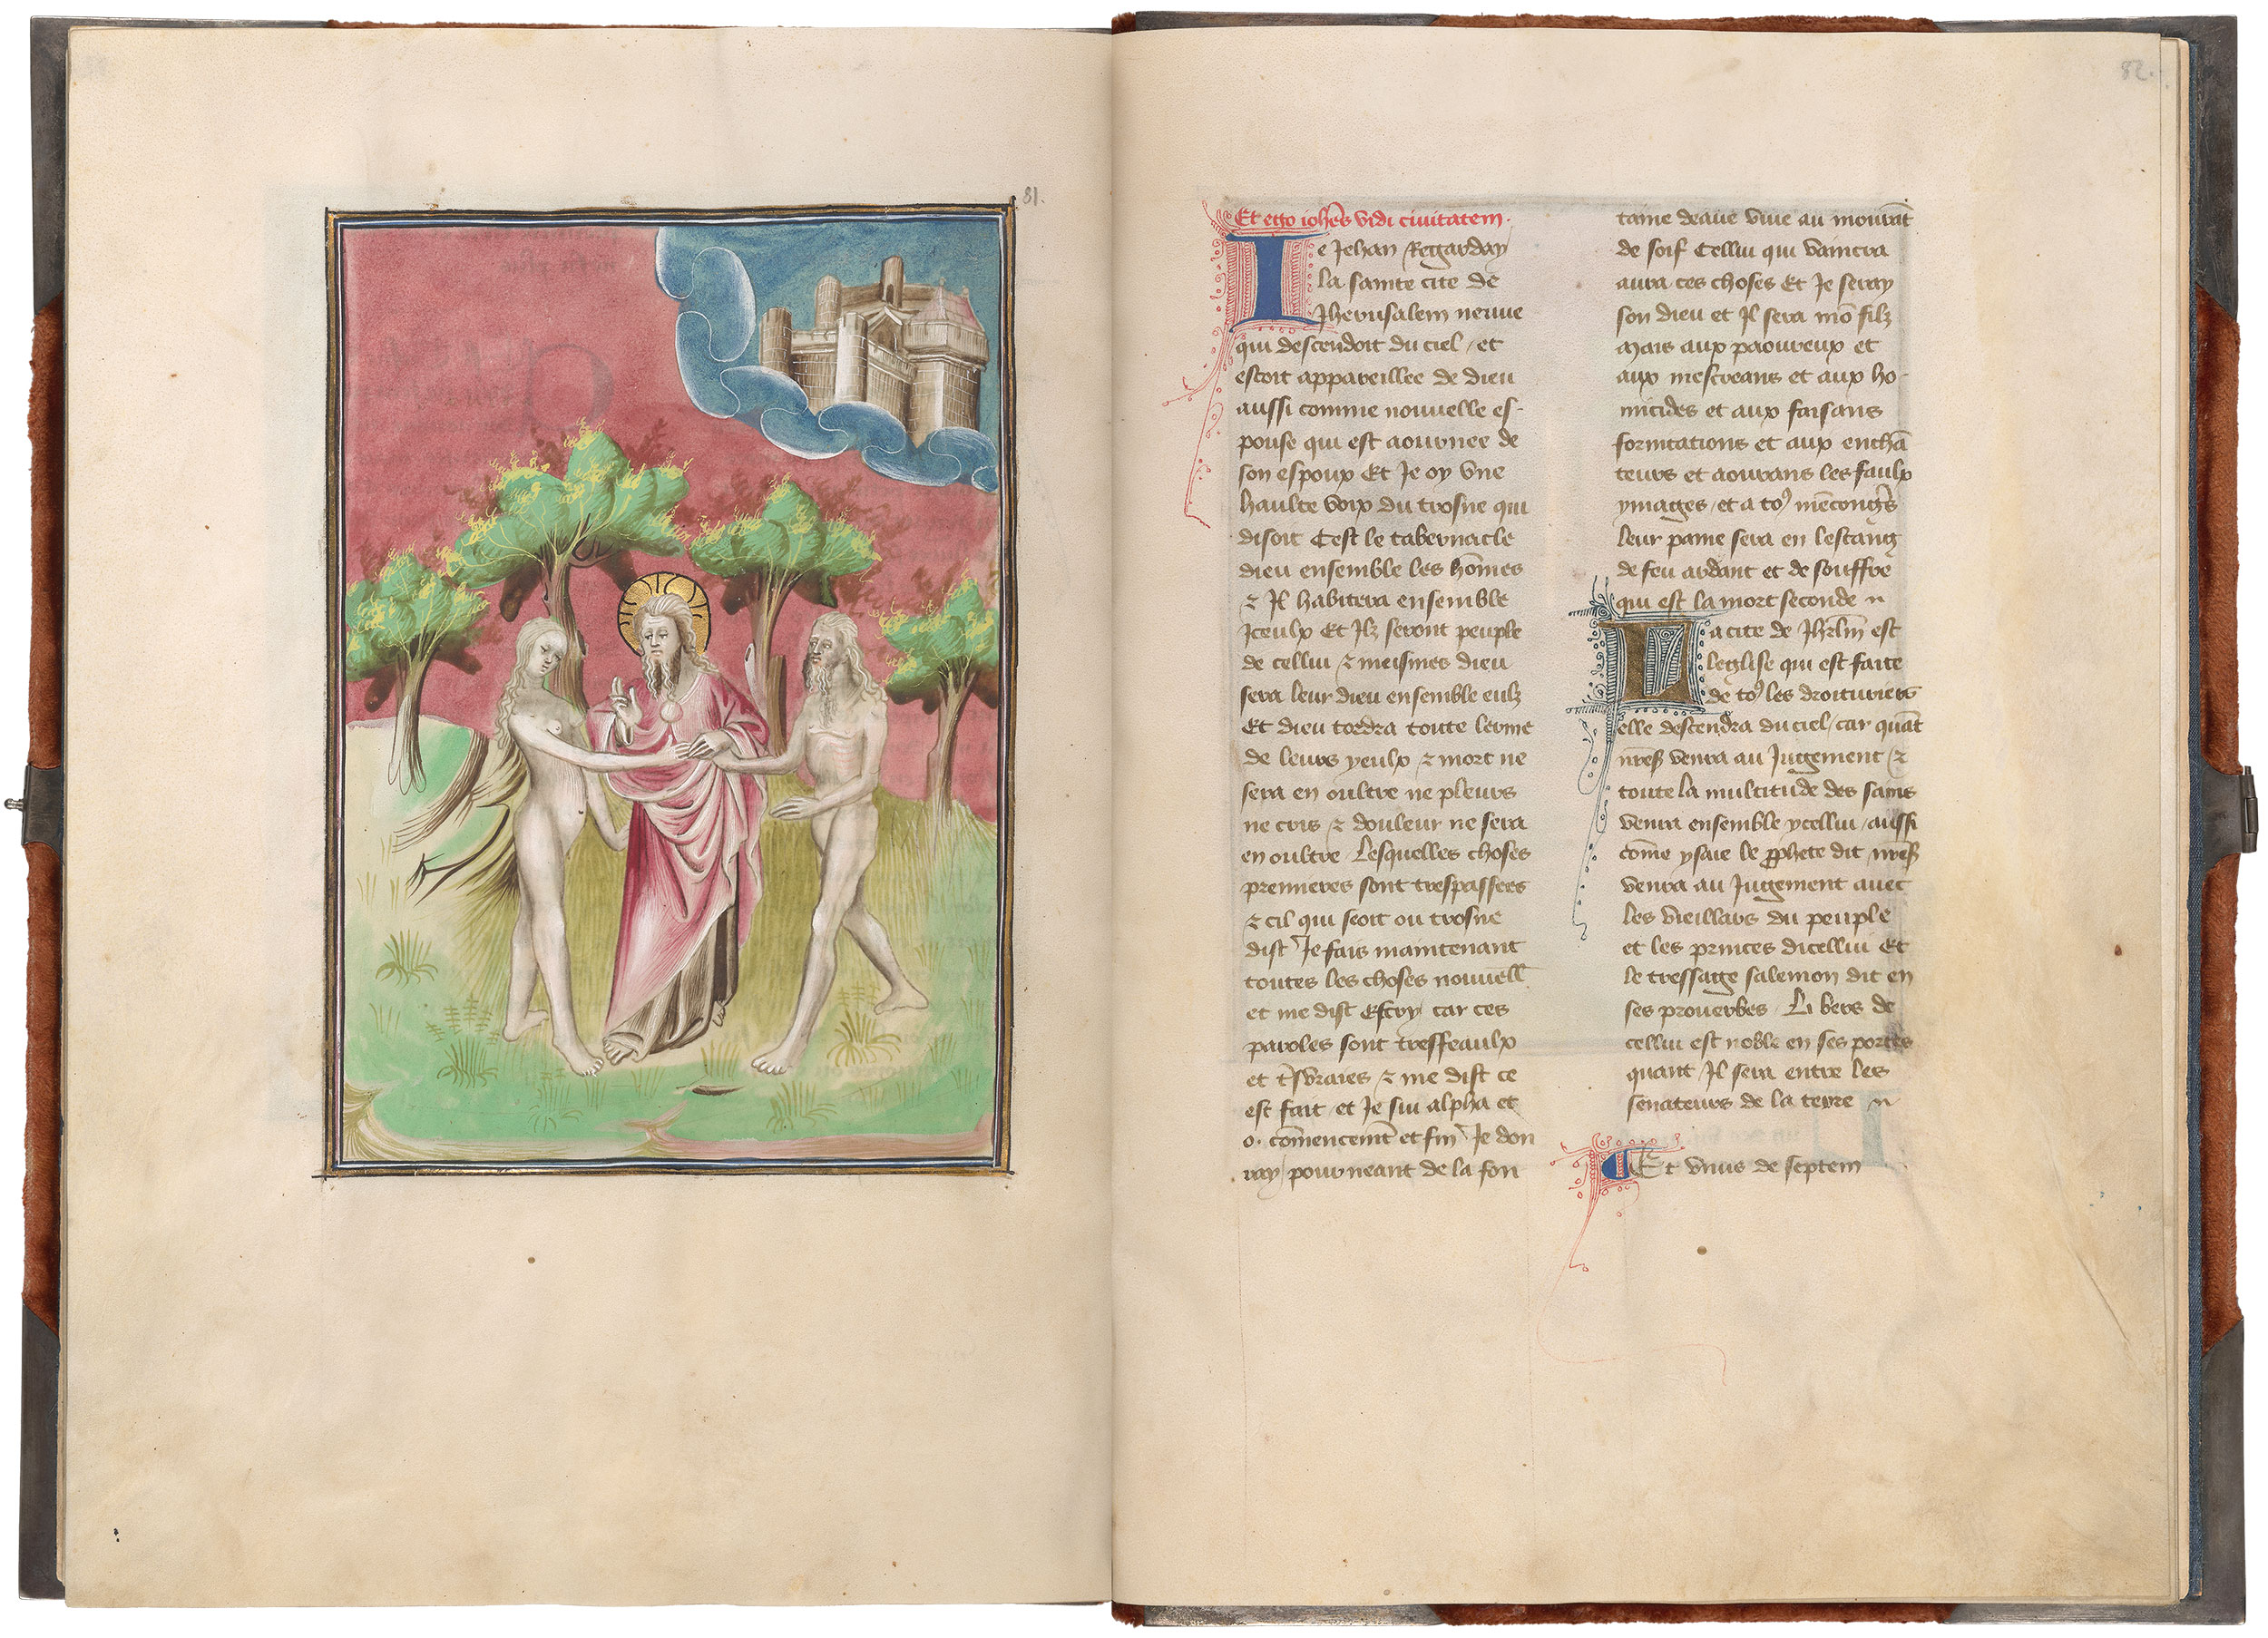 81.
82.
Et ego ioh̄es vidi ciuitatem.
Ie Jehan Regarday
la sainte cite de
Jherusalem neuue
qui descendoit du ciel / et
estoit appareillee de dieu
aussi comme nouuelle es-
pouse qui est aournee de
son espoux Et Je oy vne
haulte voix du trosne qui
disoit Cest le tabernacle
dieu ensemble les hōmes
⁊ Il habitera ensemble
Iceulx Et Ilz seront peuple
de cellui ⁊ meismes dieu
sera leur dieu ensemble eulz
Et dieu tordra toute lerme
de leurs yeulx ⁊ mort ne
sera en oultre ne pleurs
ne cris ⁊ douleur ne sera
en oultre Lesquelles choses
premieres sont trespassees
⁊ cil qui seoit ou trosne
dist Je fais maintenant
toutes les choses nouuell
et me dist Escry car ces
paroles sont tresfeaulx
et tsvraies ⁊ me dist ce
est fait et Je sui alpha et
o. cōmencemt et fin Je don
ray pour neant de la fon
taine deaue viue au mourāt
de soif Cellui qui vaincra
aura ces choses Et Je seray
son dieu et Il sera mō filz
Mais aux paoureux et
aux mescreans et aux ho-
micides et aux faisans
fornications et aux enchā
teurs et aourans les faulx
ymages / et a to9 mēcongrs
leur paine sera en lestang
de feu ardant et de souffre
qui est la mort seconde
La cite de Jhrlm̄ est
leglise qui est faite
de to9 les droituriers
elle descendra du ciel / car quāt
nr̄es venra au Jugement ⁊
toute la multitude des sains
venra ensemble ycellui / aussi
cōme ysaie le prophete dit nr̄es
venra au Jugement auec
les vieillars du peuple
et les princes dicellui Et
le tressage salemon dit en
ses prouerbes Li bers de
cellui est noble en ses portes
quant Il sera entre les
senateurs de la terre
Et vnus de septem